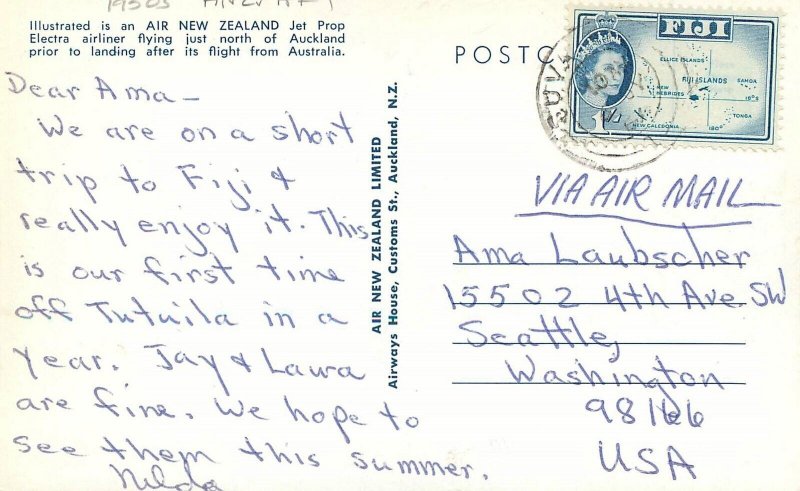 Illustrated is an AIR NEW ZEALAND Jet Prop
Electra airliner flying just north of Auckland
prior to landing after its flight from Australia.
POSTC
FIJI
ELLICE ISLANDS
FIJI ISLANDS
SAMOA
NEW
HEBRIDES
TONGA
NEW CALEDONIA
180°
SUVA
Dear Ama —
We are on a short
trip to Fiji &
really enjoy it. This
is our first time
off Tutuila in a
year. Jay & Laura
are fine. We hope to
see them this summer.
Nelda
AIR NEW ZEALAND LIMITED
Airways House, Customs St., Auckland, N.Z.
VIA AIR MAIL
Ama Laubscher
15502 4th Ave SW
Seattle,
Washington
98166
USA